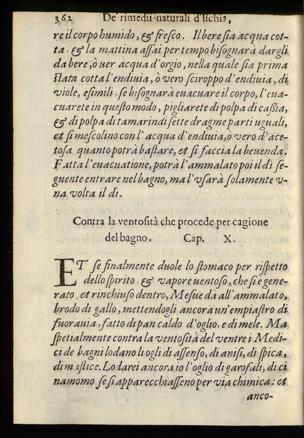 362 De' rimedii naturali d'Ischia,
re il corpo humido, & fresco. Il bere sia acqua cot-
ta. & la mattina assai per tempo bisognarà dargli
da bere, ò uer acqua d'orgio, nella quale sia prima
stata cotta l'endiuia, ò vero sciroppo d'endiuia, di
viole, e simili. se bisognarà euacuare il corpo, l'eua-
cuarete in questo modo, pigliarete di polpa di cassia,
& di polpa di tamarindi sette dragme parti uguali,
et si mescolino con l'acqua d'endiuia, ò vero d'ace-
tosa quanto potrà bastare, et si faccia la beuenda.
Fatta l'euacuatione, potrà l'ammalato poi il dì se-
guente entrare nel bagno, ma l'vsarà solamente v-
na volta il dì.
Contra la ventosità che procede per cagione
del bagno. Cap. X.
ET se finalmente duole lo stomaco per rispetto
dello spirito & vapore uentoso, che si è gene-
rato, et rinchiuso dentro, Mesue dà all'ammalato,
brodo di gallo, mettendogli ancora un'empiastro di
fuora via, fatto di pan caldo d'oglio, e di mele. Ma
spetialmente contra la ventosità del ventre i Medi-
ci de bagni lodano li ogli di assenso, di anisi, di spica,
di mastice. Lodarei ancora io l'oglio di garofali, di ci
namomo se si apparecchiasseno per via chimica: et
anco-